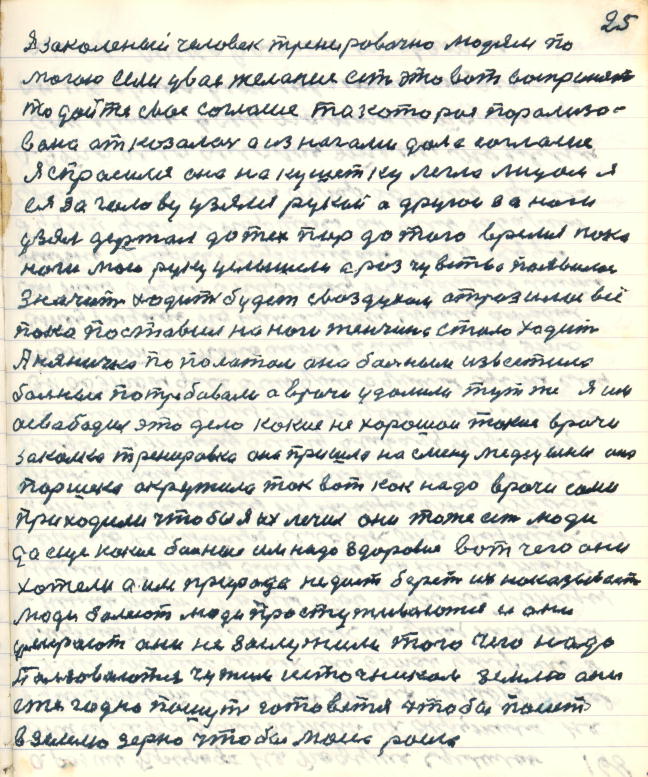 25
Я закаленый человек тренировачно людям по
могаю если у вас желание есть это вот воспринять
то дайте свое согласие та которая парализо-
вана отказалах а из начали дала согласия
Я спрасился она на кушетку легла лицом я
ея за голову узяли рукой а другой за ноги
узял держал до тех пор до того время пока
ноги мою руку услышели а раз чувство появилось
значить ходить будет своздухом отрозилось всё
пока поставил на ноги женчина стала ходить
А няничка по полатам она больным известила
больные потребовали а врачи удалили тут же Я им
освабадил это дело какие не хорошои такие врачи
закалка тренировка она пришла на смену медецыны она
поршека окружила так вот как надо врачи сами
приходили чтобы я их лечил они тоже есть люди
да еще какие больные им надо здоровие вот чего они
хотели а им природа недает берет их наказывает
люди болеют люди простуживаются и они
умирают они не заслужили того чего надо
Пользоваются чужим источником землю они
ежегодно пашуть готовятся чтобы посеять
в землю зерно чтобы мош росла